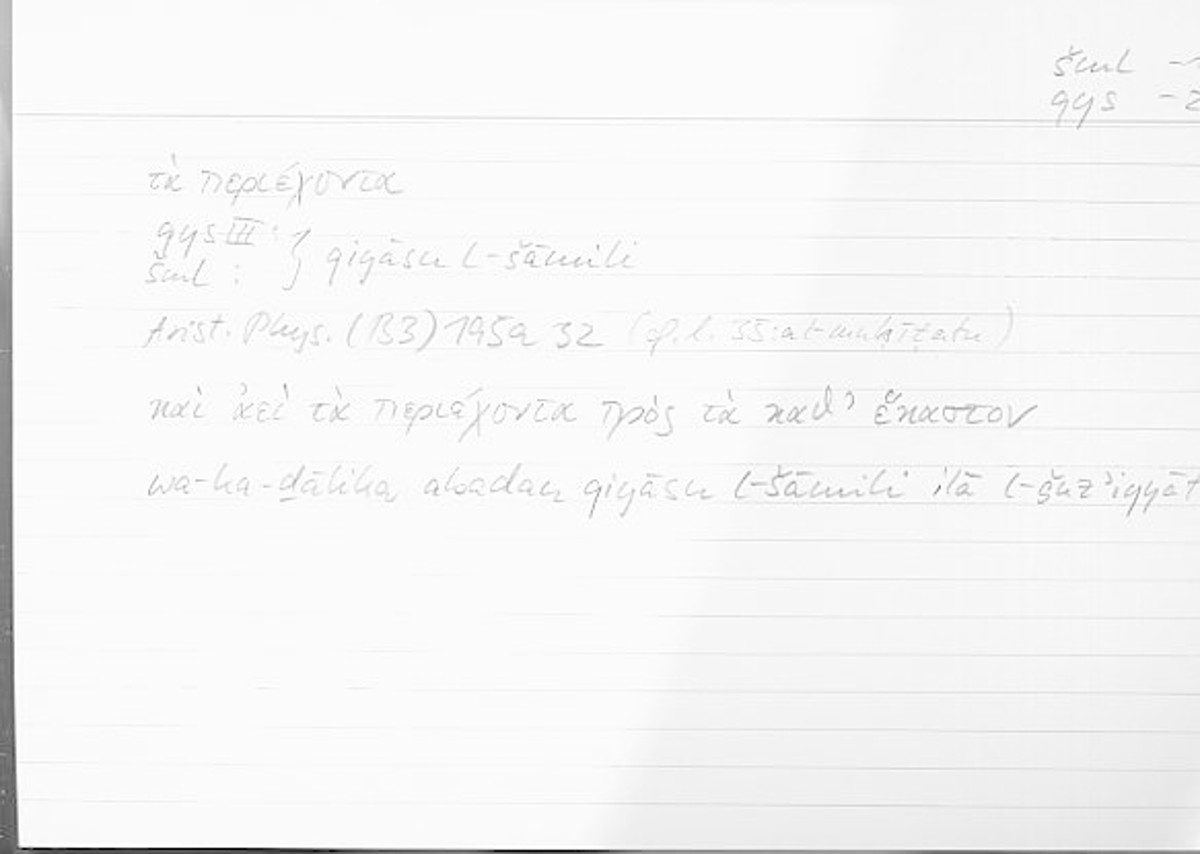 šml
qys
τὰ περιέχοντα
qys III :
šml : } qiyāsu l-šāmili
Arist. Phys. (B3) 195a 32
καὶ ἀεὶ τὰ περιέχοντα πρὸς τὰ καθ' ἕκαστον
wa-ka-ḏālika abadan qiyāsu l-šāmili ilā l-ǧuzʾiyyāt